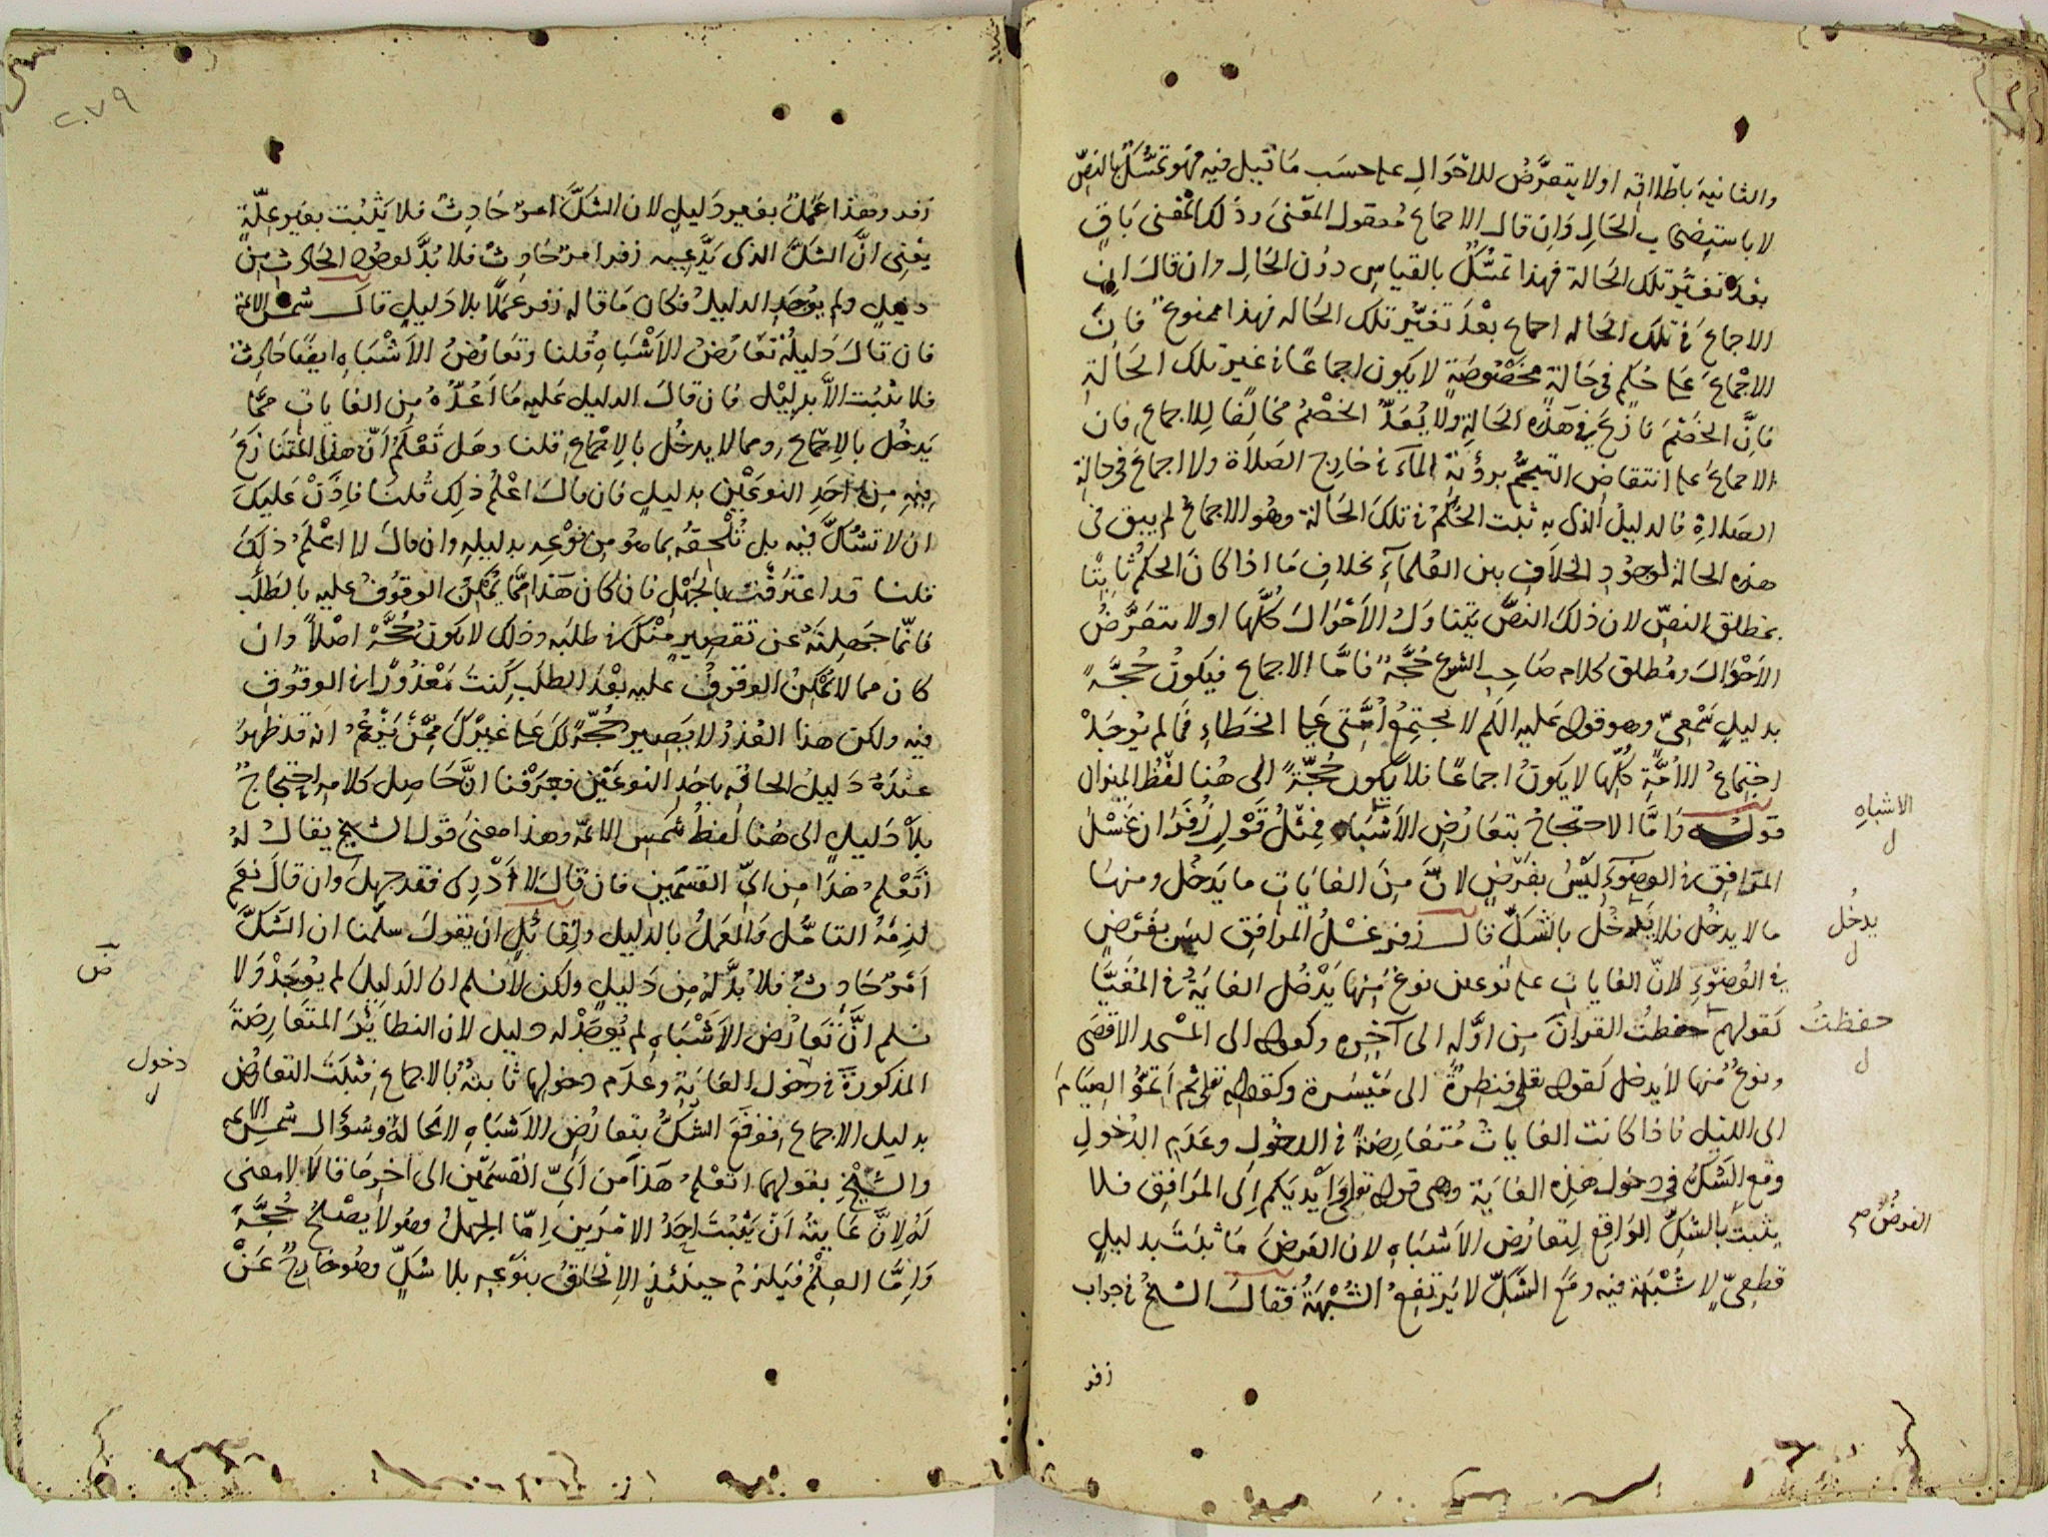 والثانية باطلاقه او لا يتعرَّضُ للاحْوَالِ على حسَب مَا قيل فيه فهو تمَسُّكٌ بالنصّ
لا باستصحاب الحَالِ وَان قال الاجماع مُعقول المعْنىَ وذلك المعْنى بَاقٍ
بعْدَ تغيّر تلك الحَالة فهذا تمسُّكٌ بالقياسِ دوُن الحَالِ وان قال انّ
الاجماعَ في تلك الحَاله اجماع بعْدَ تغيّر تلك الحَاله فهذا ممنوعٌ فانّ
الاجْماعَ عَلى حُكمٍ في حَالةٍ مخصُوصَةٍ لا يكون اجماعًا في غير تلك الحَالةِ
فانَّ الخصْمَ نازَعَ في هَذه الحَالةِ ولا يُعَدُّ الخصْمُ مخالفًا للاجماع فان
الاجماعَ على انتقاض التيمُّمِ برؤيةِ المآء في خارج الصَلاة ولا اجماعَ في حالةِ
الصَلاةِ فالدليلُ الذى به ثبت الحُكمُ في تلكَ الحَالة وهُو الاجماعُ لم يبق في
هذه الحالة لوجُودِ الخلافِ بين العُلماءِ بخلافِ مَا اذا كانَ الحكمُ ثابتًا
بمطلق النصّ لان ذلكَ النصَّ يتناوَلُ الاحْوَالَ كُلَّها او لا يتعَرَّضُ
الاحْوَالَ ومُطلق كلام صَاحِب الشرع حُجَّةٌ فامَّا الاجماع فيكونُ حُجَّةً
بدليلٍ سَمْعىّ وهو قوله عَليه السلم لا تجتمِعُ اُمَّتى عَلى الخطاءِ فمَا لم يُوجَدْ
اجتماعُ الاُمَّةِ كُلِّها لا يَكونُ اجماعًا فلا يكون حُجّةً الى هُنا لفظُ الميزان
قوله وَامَّا الاحتجاجُ بتعارُضِ الاشْبَاهِ فمِثْلُ قَوْلِ زُفَرَ ان غَسْلَ
المرَافِقِ في الوضوءِ ليْسَ بفَرْضٍ لانَّ مِنَ الغايَاتِ ما يَدخُل ومنهَا
ما لا يدخُل فلا يَدْخُل بالشكّ قال زفر غسْلُ المرَافِق ليسَ بفَرضٍ
في الوُضوْءِ لانّ الغاياتِ على نوعين نوعٌ مِنهَا يَدْخُل الغايَةُ في المُغيَّا
كقولهم حفظتُ القرانَ مِن اوَّله الى آخِرِه وكقوله الى المسْجد الاقصَى
ونوعٌ مُنها لا يدخل كقوله تعالى فنظِرةٌ الى مَيْسَرة وكقوله تعالى ثم اَتمّوا الصِيَامَ
الى الليْل فاذا كانت الغاياتُ مُتعَارِضةً في الدخُول وعَدَمِ الدُخولِ
وقع الشكُّ في دخول هذِه الغايَة وهى قوله تعالى وَاَيْديَكم اِلى المرَافِق فلا
يثبتُ بالشكِّ الوَاقع لِتعارُض الاشبَاهِ لان الفرضَ مَا ثبَتَ بدليلٍ
قطعِىّ لا شُبْهَة فيه ومَعَ الشّكّ لا يَرتفعُ الشُبْهَةُ فقال الشيخُ في جواب
زفر
الاشباهِ
ل
يدخُل
ل
حفظتُ
ل
الفرضُ صح
٢٠٧٩
زفر وهذا عَمَلٌ بغير دَليلٍ لان الشكَّ امرٌ حَادِثٌ فلا يَثْبُت بغَير عِلّةٍ
يعْنِى انَّ الشكَّ الذى يَدَّعيه زفر امرٌ حَادِثٌ فلا بُدَّ لوجُودِ الحَادِثِ مِنْ
دليلٍ ولم يوُجَدِ الدليلُ فكان مَا قاله زفر عَملًا بلا دَليلٍ قال شمس الائمة
فان قالَ دَليلُهُ تعَارُضُ الاَشْبَاهِ قُلنا وتعَارُضُ الاَشْبَاهِ ايضًا حَادِثٌ
فلا يثبُت الاَّ بدليْل فان قالَ الدليل عَليه مَا اَعُدُّهُ مِن الغاياتِ مِمَّا
يَدخُل بالاجماع ومما لا يدخُل بالاِجماع قلنا وهَل تَعْلَمُ اَنّ هذا المُتنَازَعَ
فيهِ مِن احَدِ النوعَيْن بدليلٍ فان قالَ اعْلمُ ذلك قُلنَا فاِذَنْ عَليكَ
ان لا تشُكَّ فيه بل تُلْحِقهُ بما هُو مِن نوْعِه بدليلهِ وان قالَ لا اعْلَمُ ذلِكَ
قلنا قد اعْتَرَفْتَ بالجَهْلِ فان كان هَذا مِمَّا يُمْكِنُ الوقوُفُ عليه بالطَلَب
فانّما جَهِلتَهُ عن تقصيرٍ مِنْكَ في طلبَه وذلك لا يكونُ حُجَّةً اصْلاً وان
كان مما لا يُمْكِنُ الوقوفُ عليه بعْدَ الطلَبِ كنتَ مَعْذُورًا في الوقوُفِ
فيه ولكن هذا العُذرُ لا يَصِير حُجّةً لكَ عَلى غيْركَ مِمَّنْ يَزْعُمُ انه قد ظهرَ
عندَهُ دَليلُ الحاقِه باحَدِ النوعَيْن فعَرَفْنا انَّ حَاصِل كلامِه احتجاجٌ
بلاْ دَليلٍ الى هُنا لفظُ شمس الائمّة وهذا معنىَ قول الشيخ يقال لهُ
اَتَعْلمُ هذا مِن اىّ القسمَين فان قالَ لا اَدْرِى فقد جهِلَ وان قالَ نعَم
لزِمَهُ التامُّل وَالعَمَلُ بالدليل ولِقائلٍ ان يقوُلَ سلَّمنا ان الشَكَّ
اَمرٌ حَادثٌ فلا بُدَّ لهُ مِن دَليلٍ ولكن لا نسلم ان الدَليلَ لم يُوجَدْ وَلا
نسلم انَّ تعَارُضَ الاَشْبَاهِ لم يُوجَدْ له دليل لان النظايرَ المتعَارِضَةَ
المذكورَةَ في دخول الغايَةِ وعدَم دخولها ثابتةٌ بالاجماع فثبَتَ التعارُضُ
بدليل الاجماع فوَقعَ الشكُّ بتعارُضِ الاَشبَاهِ لا محَالةَ وسُؤَال شمس الائمة
والشيخ بقولهما اتعْلمُ هَذا مَن اَىّ القسمَين الى اخِر مَا قالا لا معنى
لهُ لِانَّ غايتهُ اَنْ يَثْبُتَ اَحَدُ الامرَين اِمّا الجهلُ وهُو لا يَصْلحُ حُجَّةً
وَاِمَّا العِلْمُ فيَلزمُ حينئذٍ الاِلحَاقُ بنوْعِه بلا شكٍّ وهُو خارِجٌ عَنْ
دخول
ل